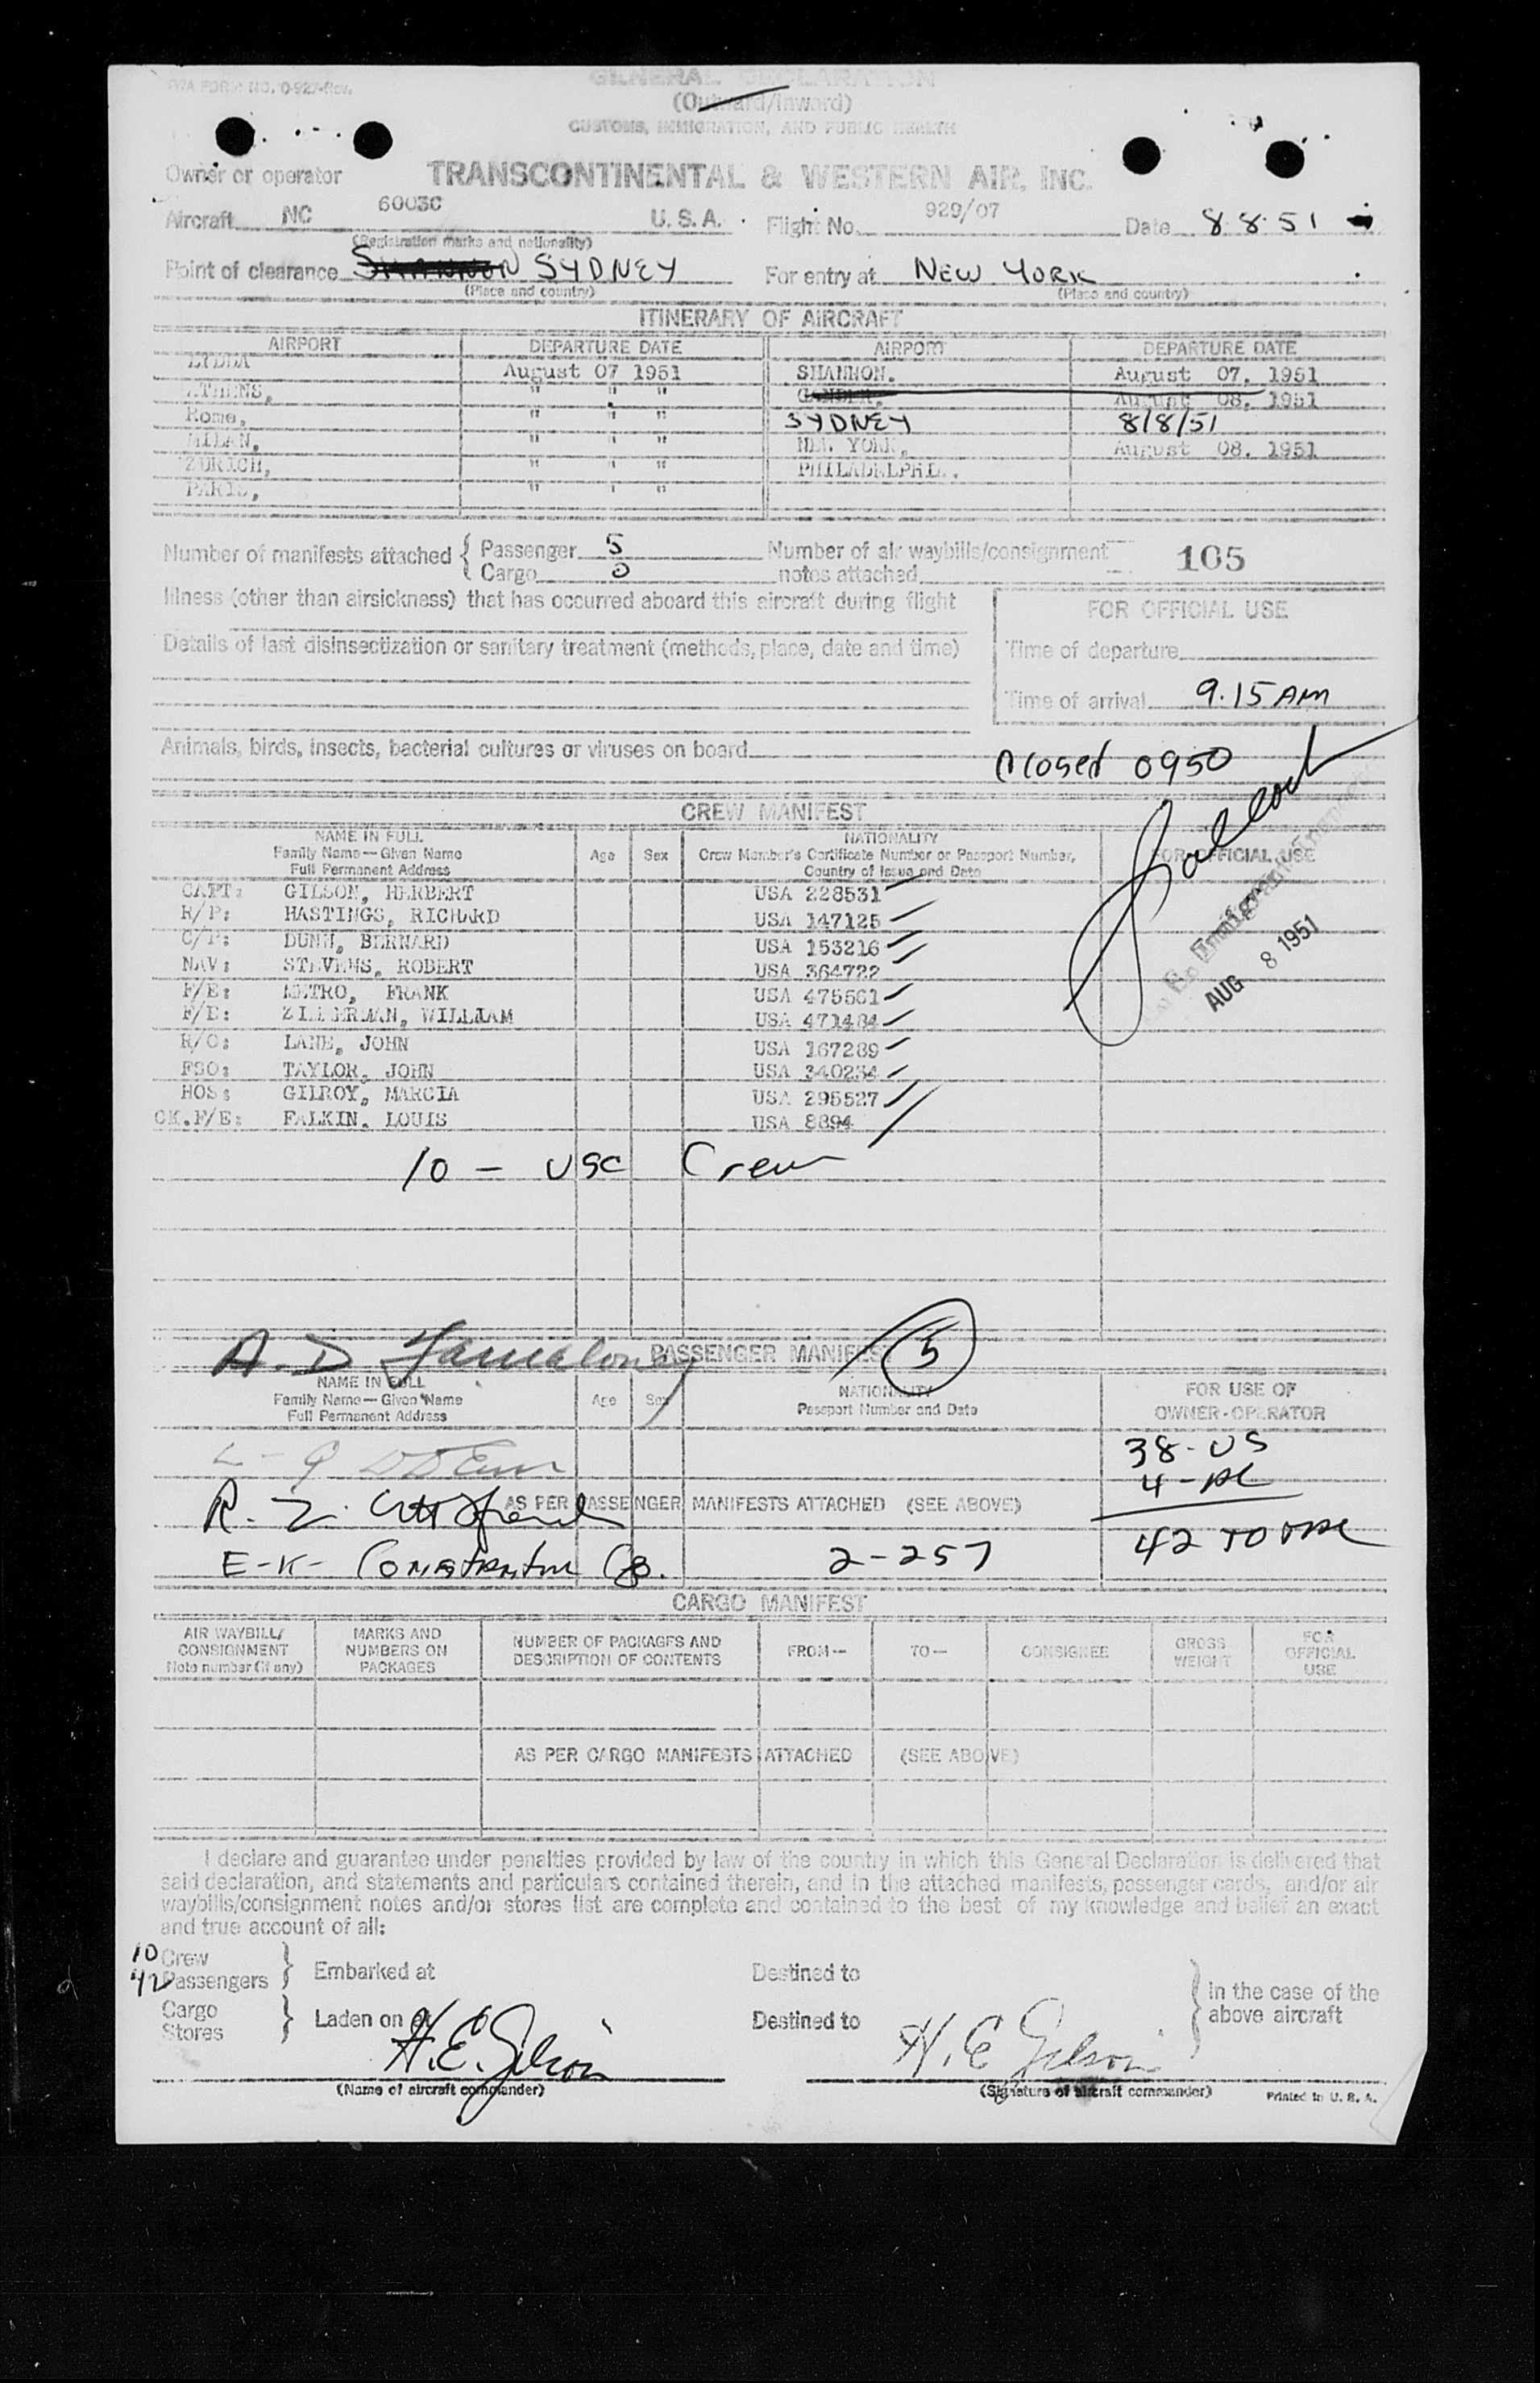 TWA FORM NO. 0-927-Rev.
GENERAL DECLARATION
(Outward/Inward)
CUSTOMS, IMMIGRATION, AND PUBLIC HEALTH
Owner or operator TRANSCONTINENTAL & WESTERN AIR, INC.
Aircraft NC 6003C U.S.A. Flight No. 929/07 Date 8-8-51
(Registration marks and nationality)
Point of clearance SHANNON SYDNEY For entry at NEW YORK
(Place and country) (Place and country)
ITINERARY OF AIRCRAFT
AIRPORT DEPARTURE DATE AIRPORT DEPARTURE DATE
LYDDA August 07 1951 SHANNON. August 07. 1951
ATHENS, " " " GANDER, August 08. 1951
Rome, " " " SYDNEY 8/8/51
MILAN, " " " NEW YORK, August 08. 1951
ZURICH, " " " PHILADELPHIA.
PARIS, " " "
Number of manifests attached { Passenger 5 Number of air waybills/consignment 105
Cargo 0 notes attached
Illness (other than airsickness) that has occurred aboard this aircraft during flight
FOR OFFICIAL USE
Details of last disinsectization or sanitary treatment (methods, place, date and time)
Time of departure
Time of arrival 9.15 AM
Animals, birds, insects, bacterial cultures or viruses on board
Closed 0950
CREW MANIFEST
NAME IN FULL Family Name—Given Name Full Permanent Address Age Sex NATIONALITY Crew Member's Certificate Number or Passport Number, Country of Issue and Date FOR OFFICIAL USE
CAPT: GILSON, HERBERT USA 228531
R/P: HASTINGS, RICHARD USA 147125
C/P: DUNN, BERNARD USA 153216
NAV: STEVENS, ROBERT USA 364722
F/E: METRO, FRANK USA 475561
F/E: ZIMMERMAN, WILLIAM USA 471484
R/O: LANE, JOHN USA 167289
FSO: TAYLOR, JOHN USA 340234
HOS: GILROY, MARCIA USA 295527
CK.F/E: FALKIN, LOUIS USA 8894
AUG 8 1951
10 - USC Crew
A. D.
PASSENGER MANIFEST 5
NAME IN FULL Family Name—Given Name Full Permanent Address Age Sex NATIONALITY Passport Number and Date FOR USE OF OWNER-OPERATOR
38-US
4-
AS PER PASSENGER MANIFESTS ATTACHED (SEE ABOVE)
42 TOTAL
E-K- 2-257
CARGO MANIFEST
AIR WAYBILL/ CONSIGNMENT Note number (if any) MARKS AND NUMBERS ON PACKAGES NUMBER OF PACKAGES AND DESCRIPTION OF CONTENTS FROM— TO— CONSIGNEE GROSS WEIGHT FOR OFFICIAL USE
AS PER CARGO MANIFESTS ATTACHED (SEE ABOVE)
I declare and guarantee under penalties provided by law of the country in which this General Declaration is delivered that
said declaration, and statements and particulars contained therein, and in the attached manifests, passenger cards, and/or air
waybills/consignment notes and/or stores list are complete and contained to the best of my knowledge and belief an exact
and true account of all:
10 Crew
42 Passengers } Embarked at Destined to
In the case of the above aircraft
Cargo
Stores } Laden on at Destined to
H.E. Gilson H.E Gilson
(Name of aircraft commander) (Signature of aircraft commander) Printed in U. S. A.